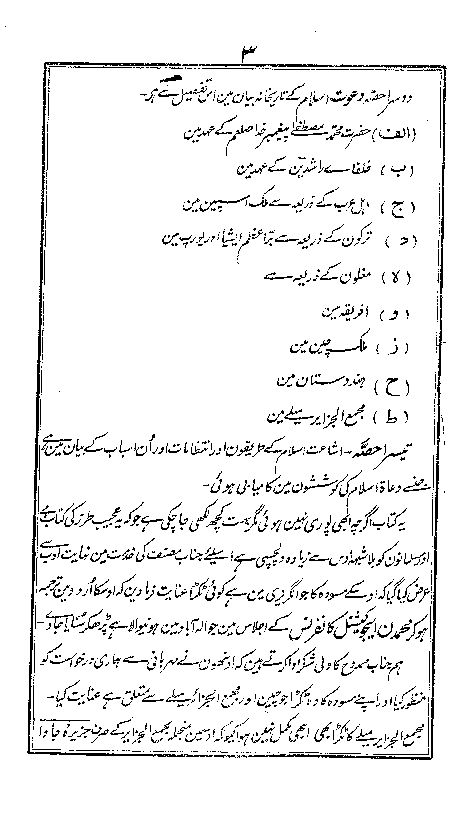 ۳
دوسرا حصّہ دعوت اسلام کے تاریخانہ بیان مین اس تفصیل سے ہر۔
(الف) حضرت محمد مصطفےٰ پیغمبر خدا صلعم کے عہد مین
(ب) خلفاے راشدین کے عہد مین
(ج) اہل عرب کے ذریعہ سے ملک اسپین مین
(د) ترکون کے ذریعہ سے بر اعظم ایشیا اور یورپ مین
(ہ) مغلون کے ذریعہ سے
(و) افریقہ مین
(ز) ملک چین مین
(ح) ہندوستان مین
(ط) مجمع الجزایر میلے مین
تیسرا حصّہ۔ اشاعت اسلام کے طریقون اور انتظامات اور اُن اسباب کے بیان مین ہے
جنسے دعاۃ اسلام کی کوششون مین کامیابی ہوئی۔
یہ کتاب اگرچہ ابھی پوری نہین ہوئی مگر بہت کچھ لکھی جا چکی ہے جو کہ یہ عجیب طرز کی کتاب ہے
اور مسلمانون کو بلاشبہ اوس سے زیادہ دلچسپی ہے اسیلئے جناب مصنف کی خدمت مین نہایت ادب سے
عرض کیا گیا کہ اوسکے مسودہ کا جو انگریزی مین ہے کوئی ٹکڑا عنایت فرماوین کہ اوسکا اُردو مین ترجمہ
ہو کر محمڈن ایجوکیشنل کانفرنس کے اجلاس مین جو الہ آباد مین ہونیوالا ہے پڑھکر سنایا جاوے۔
ہم جناب ممدوح کا دلی شکر ادا کرتے ہین کہ اونھون نے مہربانی سے ہماری درخواست کو
منظور کیا اور اپنے مسودہ کا وہ ٹکڑا جو چین اور مجمع الجزائر میلے سے متعلق ہے عنایت کیا۔
مجمع الجزایر میلے کا ٹکڑا بھی ابھی مکمل نہین ہوا کیونکہ اوسمین منجملہ مجمع الجزایر کے صرف جزیرہ جاوا